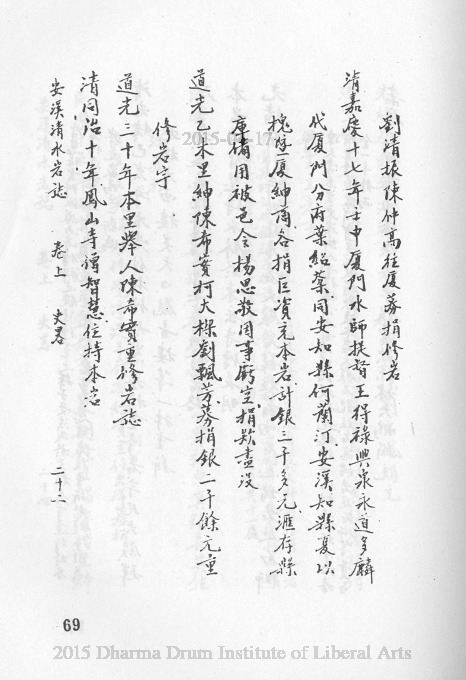 劉清振陳仲高往厦募捐修岩
清嘉慶十七年壬申厦門水師提督王得祿興泉永道多麟
代厦門分府葉紹棻同安知縣何蘭汀安溪知縣夏以
槐暨厦紳商各捐巨資充本岩計銀三千多元滙存縣
庫備用被邑令楊思敬因事虧空捐欵盡没
道光乙未里紳陳希實柯大樑劉飄芳募捐銀二千餘元重
修岩宇
道光三十年本里舉人陳希實重修岩誌
清同治十年鳳山寺僧智慧住持本岩
安溪清水岩誌 卷上 史畧 二十二
69
2015-03-17
2015 Dharma Drum Institute of Liberal Arts